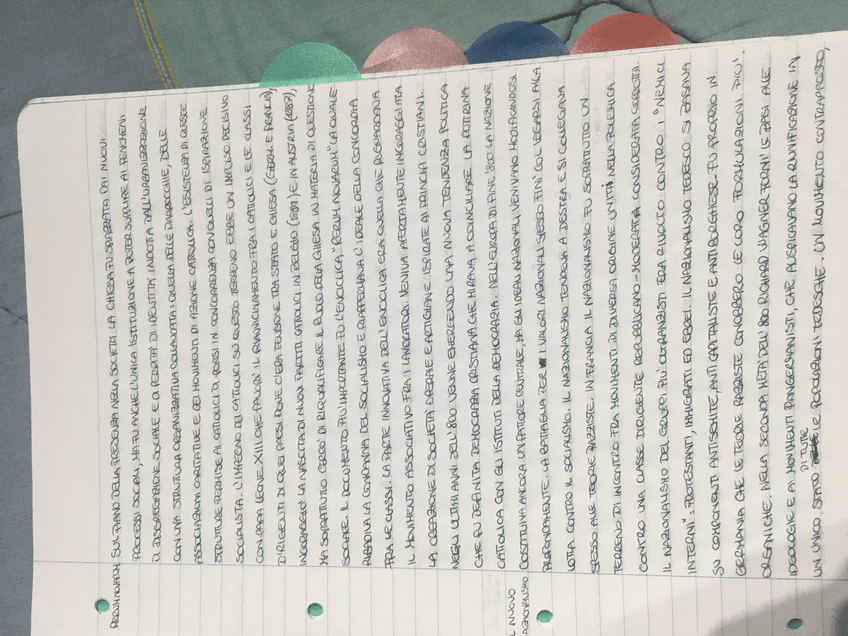 RERUM NOVARUM
SUL PIANO DELLA PRESENZA NELLA SOCIETÀ LA CHIESA FU SPIAZZATA DAI NUOVI
PROCESSI SOCIALI, MA FU ANCHE L'UNICA ISTITUZIONE A POTER SUPPLIRE AI FENOMENI
DI DISGREGAZIONE SOCIALE E DI PERDITA DI IDENTITÀ INDOTTA DALL'URBANIZZAZIONE
CON UNA STRUTTURA ORGANIZZATIVA COLLAUDATA: QUELLA DELLE PARROCCHIE, DELLE
ASSOCIAZIONI CARITATIVE E DEI MOVIMENTI DI AZIONE CATTOLICA. L'ESISTENZA DI QUESTE
STRUTTURE PERMISE AI CATTOLICI DI PORSI IN CONCORRENZA CON QUELLI DI ISPIRAZIONE
SOCIALISTA. L'IMPEGNO DEI CATTOLICI SU QUESTO TERRENO EBBE UN IMPULSO DECISIVO
CON PAPA LEONE XIII CHE FAVORÌ IL RIAVVICINAMENTO FRA I CATTOLICI E LE CLASSI
DIRIGENTI DI QUEI PAESI DOVE C'ERA TENSIONE TRA STATO E CHIESA (GERM. E FRANCIA),
INCORAGGIÒ LA NASCITA DI NUOVI PARTITI CATTOLICI IN BELGIO E IN AUSTRIA (1887),
MA SOPRATTUTTO CERCÒ DI RIQUALIFICARE IL RUOLO DELLA CHIESA IN MATERIA DI QUESTIONE
SOCIALE. IL DOCUMENTO PIÙ IMPORTANTE FU L'ENCICLICA "RERUM NOVARUM" LA QUALE
RIBADIVA LA CONDANNA DEL SOCIALISMO E RIAFFERMAVA L'IDEALE DELLA CONCORDIA
FRA LE CLASSI. LA PARTE INNOVATIVA DELL'ENCICLICA ERA QUELLA CHE RIGUARDAVA
IL MOVIMENTO ASSOCIATIVO FRA I LAVORATORI. VENIVA APERTAMENTE INCORAGGIATA
LA CREAZIONE DI SOCIETÀ OPERAIE E ARTIGIANE ISPIRATE AI PRINCIPI CRISTIANI.
NEGLI ULTIMI ANNI DELL'800 VENNE EMERGENDO UNA NUOVA TENDENZA POLITICA
CHE FU DEFINITA DEMOCRAZIA CRISTIANA CHE MIRAVA A CONCILIARE LA DOTTRINA
CATTOLICA CON GLI ISTITUTI DELLA DEMOCRAZIA. NELL'EUROPA DI FINE '800 LA NAZIONE
IL NUOVO
NAZIONALISMO
COSTITUIVA ANCORA UN FATTORE CENTRALE, MA GLI IDEALI NAZIONALI VENIVANO MODIFICANDOSI
PROFONDAMENTE. LA BATTAGLIA PER I VALORI NAZIONALI SPESSO FINÌ COL LEGARSI ALLA
LOTTA CONTRO IL SOCIALISMO. IL NAZIONALISMO TENDEVA A DESTRA E SI COLLEGAVA
SPESSO ALLE TEORIE RAZZISTE. IN FRANCIA IL NAZIONALISMO FU SOPRATTUTTO UN
TERRENO DI INCONTRO FRA MOVIMENTI DI DIVERSA ORIGINE UNITI NELLA POLEMICA
CONTRO UNA CLASSE DIRIGENTE REPUBBLICANO-MODERATA CONSIDERATA CORROTTA.
IL NAZIONALISMO DEI GRUPPI PIÙ OLTRANZISTI ERA RIVOLTO CONTRO I "NEMICI
INTERNI": PROTESTANTI, IMMIGRATI ED EBREI. IL NAZIONALISMO TEDESCO SI BASAVA
SU COMPONENTI ANTISEMITE, ANTICAPITALISTE E ANTIBORGHESE. FU PROPRIO IN
GERMANIA CHE LE TEORIE RAZZISTE CONOBBERO LE LORO FORMULAZIONI PIÙ
ORGANICHE. NELLA SECONDA METÀ DELL'800 RICHARD WAGNER FORNÌ LE BASI ALLE
IDEOLOGIE E AI MOVIMENTI PANGERMANISTI, CHE AUSPICAVANO LA RIUNIFICAZIONE IN
UN UNICO STATO DI TUTTE LE POPOLAZIONI TEDESCHE. UN MOVIMENTO CONTRAPPOSTO,